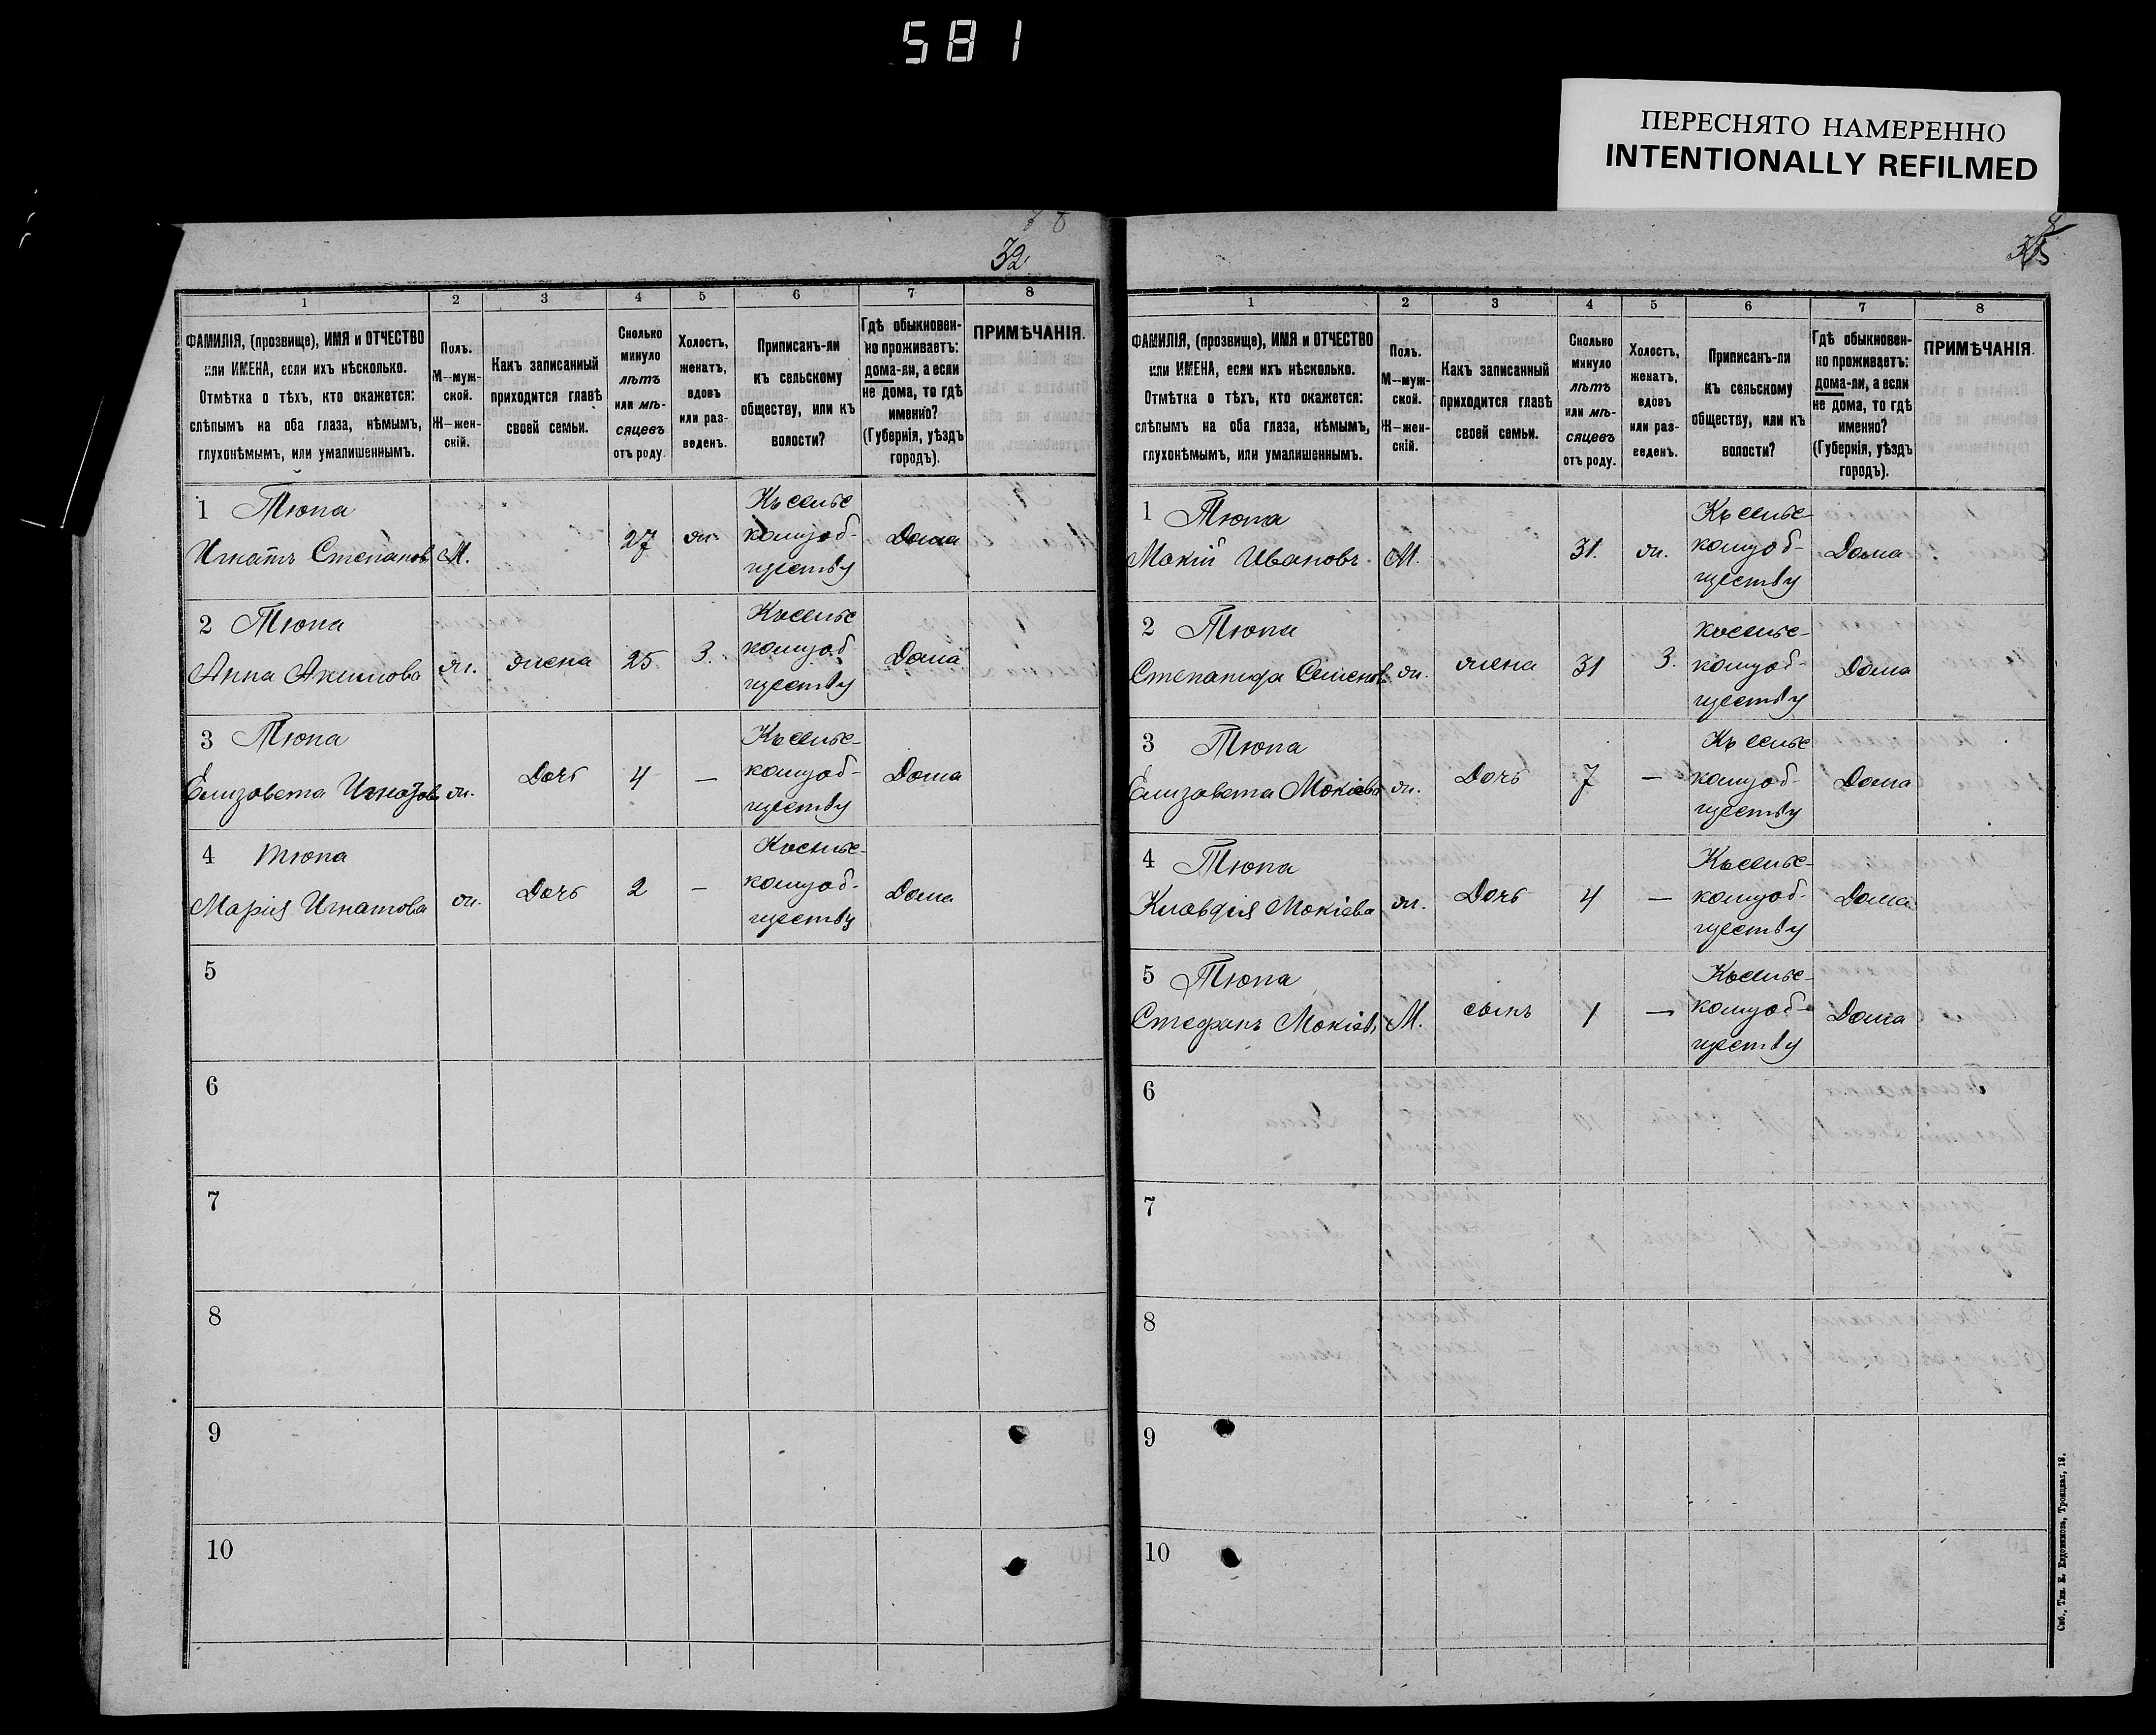 581
ПЕРЕСНЯТО НАМЕРЕННО
INTENTIONALLY REFILMED
32
1 2 3 4 5 6 7 8
ФАМИЛІЯ, (прозвище), ИМЯ и ОТЧЕСТВО
или ИМЕНА, если ихъ нѣсколько.
Отмѣтка о тѣхъ, кто окажется:
слѣпымъ на оба глаза, нѣмымъ,
глухонѣмымъ, или умалишеннымъ.
Полъ.
М—муж-
ской.
Ж—жен-
скій.
Какъ записанный
приходится главѣ
своей семьи.
Сколько
минуло
лѣтъ
или мѣ-
сяцевъ
отъ роду.
Холостъ,
женатъ,
вдовъ
или раз-
веденъ.
Приписанъ-ли
къ сельскому
обществу, или къ
волости?
Гдѣ обыкновен-
но проживаетъ:
дома-ли, а если
не дома, то гдѣ
именно?
(Губернія, уѣздъ
городъ).
ПРИМѢЧАНІЯ.
1 Тюпа
Игнатъ Степановъ
М.
27
ж.
Къ сельс
кому об-
ществу
Дома
2 Тюпа
Анна Акимова
ж.
жена
25
З.
Къ сельс
кому об
ществу
Дома
3 Тюпа
Елизовета Игнатов
ж.
Дочь
4
—
Къ сельс-
кому об-
ществу
Дома
4 Тюпа
Марія Игнатова
ж.
Дочь
2
—
Къ сельс-
кому об-
ществу
Дома
5
6
7
8
9
10
1 2 3 4 5 6 7 8
ФАМИЛІЯ, (прозвище), ИМЯ и ОТЧЕСТВО
или ИМЕНА, если ихъ нѣсколько.
Отмѣтка о тѣхъ, кто окажется:
слѣпымъ на оба глаза, нѣмымъ,
глухонѣмымъ, или умалишеннымъ.
Полъ.
М—муж-
ской.
Ж—жен-
скій.
Какъ записанный
приходится главѣ
своей семьи.
Сколько
минуло
лѣтъ
или мѣ-
сяцевъ
отъ роду.
Холостъ,
женатъ,
вдовъ
или раз-
веденъ.
Приписанъ-ли
къ сельскому
обществу, или къ
волости?
Гдѣ обыкновен-
но проживаетъ:
дома-ли, а если
не дома, то гдѣ
именно?
(Губернія, уѣздъ
городъ).
ПРИМѢЧАНІЯ.
1 Тюпа
Мокій Ивановъ.
М.
31.
ж.
Къ сельс-
кому об-
ществу
Дома
2 Тюпа
Степанида Семенов
ж.
жена
31
З.
Къ сельс-
кому об-
ществу
Дома
3 Тюпа
Елизовета Мокіева
ж.
Дочь
7
—
Къ сельс
кому об-
ществу
Дома
4 Тюпа
Клавдія Мокіева
ж.
Дочь
4
—
Къ сельс-
кому об-
ществу
Дома
5 Тюпа
Стефанъ Мокіев
М.
сынъ
1
—
Къ сельс-
кому об-
ществу
Дома
6
7
8
9
10
Спб., Тип. Е. Евдокимова, Троицкая, 18.